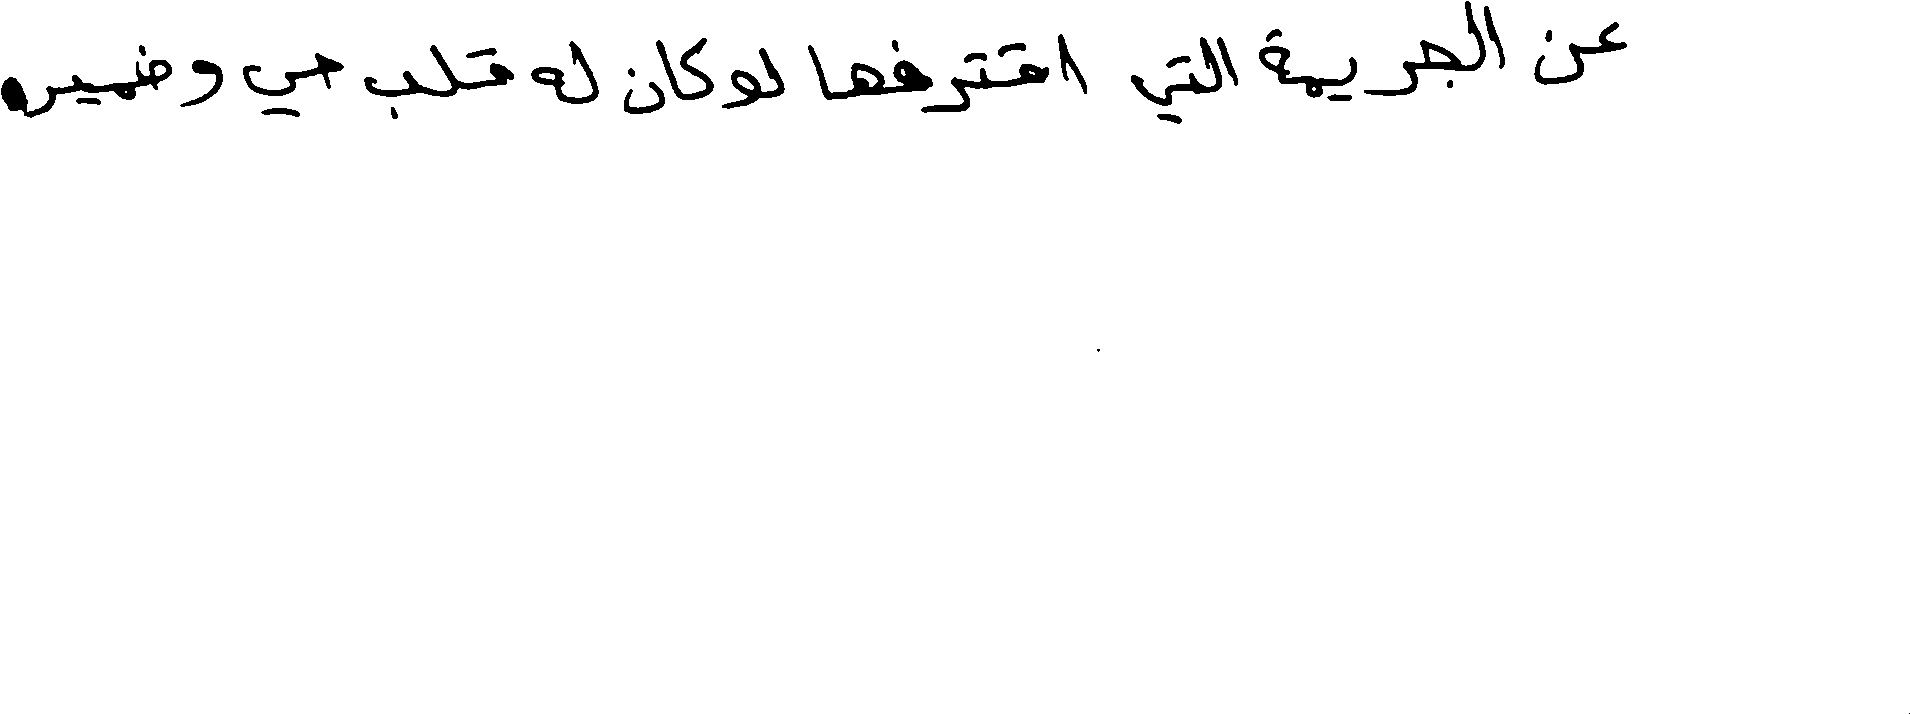 عن الجريمة التي اقترفها لو كان له قلب حي وضميره